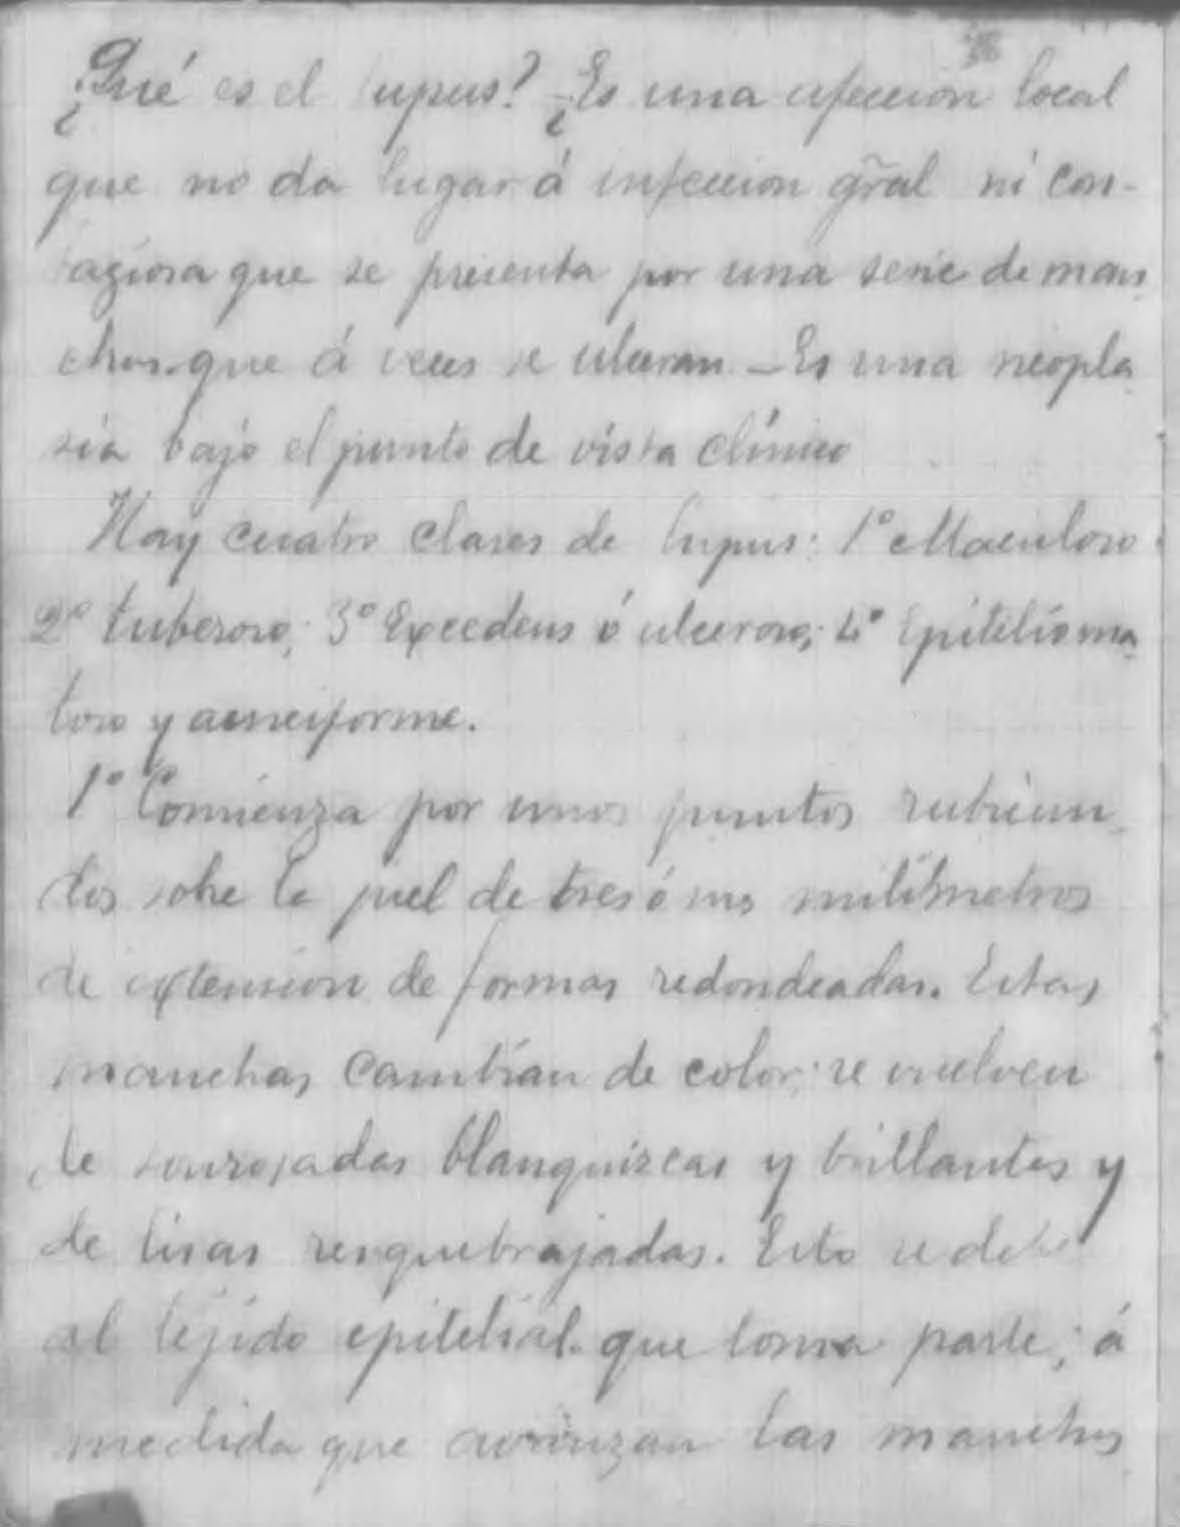 ¿Qué es el lupus? ¿Es una afeccion local
que no da lugar á infeccion gr̃al ni con-
tagiosa que se presenta por una serie de man-
chas que á veces se ulceran — Es una neopla
sia bajo el punto de vista clínico
Hay cuatro clases de lupus: 1º Maculoso
2º tuberoso; 3º Exeedens ó ulceroso; 4º Epiteliôma-
toso y acneiforme.
1º Comienza por unos puntos rubicun-
dos sobre la piel de tres ó mas milímetros
de extension de formas redondeadas. Estas
manchas cambian de color; se vuelven
de sonrosadas blanquizcas y brillantes y
de lisas resquebrajadas. Esto se debe
al tejido epitelial que toma parte; á
medida que avanzan las manchas